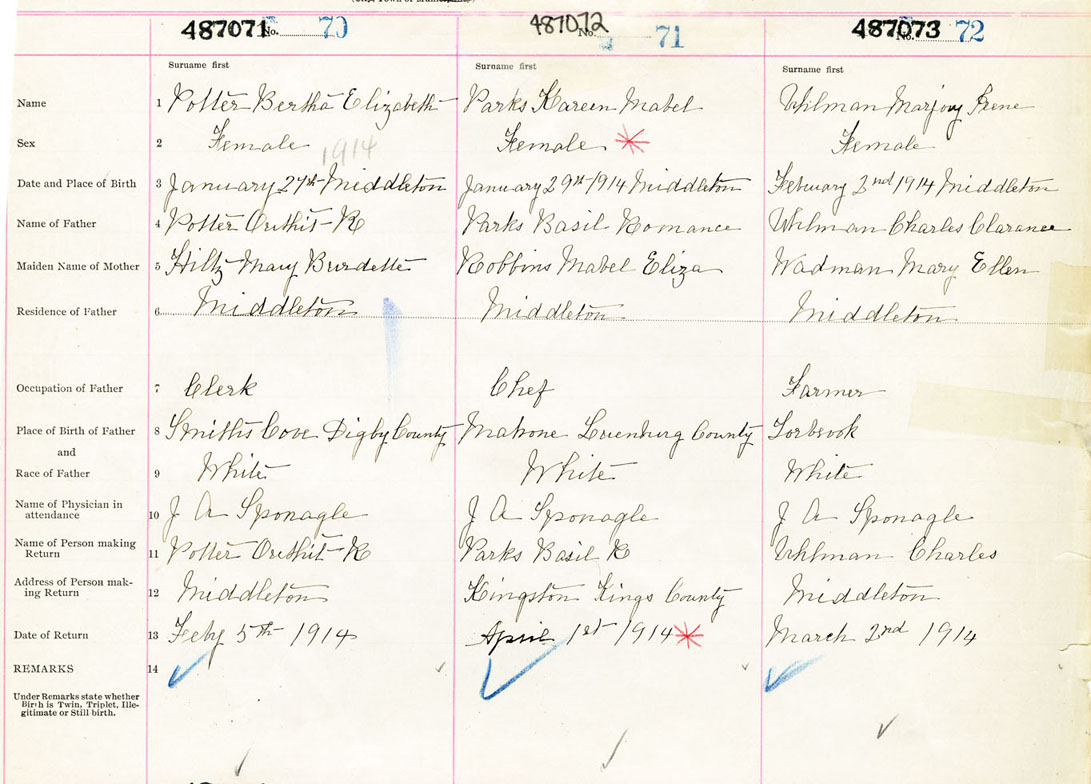 487071 No. 70 487072 No. 71 487073 No. 72
Surname first Surname first Surname first
Name 1 Potter Bertha Elizabeth Parks Kareen Mabel Uhlman Marjory Irene
Sex 2 Female Female Female
1914
Date and Place of Birth 3 January 27th Middleton January 29th 1914 Middleton February 2nd 1914 Middleton
Name of Father 4 Potter R Parks Basil Romance Uhlman Charles Clarance
Maiden Name of Mother 5 Hiltz Mary Burdette Robbins Mabel Eliza Wadman Mary Ellen
Residence of Father 6 Middleton Middleton Middleton
Occupation of Father 7 Clerk Chef Farmer
Place of Birth of Father 8 Smiths Cove Digby County Mahone Luenburg County Torbrook
and
Race of Father 9 White White White
Name of Physician in
attendance 10 J A Sponagle J A Sponagle J A Sponagle
Name of Person making
Return 11 Potter R Parks Basil R Uhlman Charles
Address of Person mak-
ing Return 12 Middleton Kingston Kings County Middleton
Date of Return 13 Feby 5th 1914 April 1st 1914 March 2nd 1914
REMARKS 14
Under Remarks state whether
Birth is Twin, Triplet, Ille-
gitimate or Still birth.